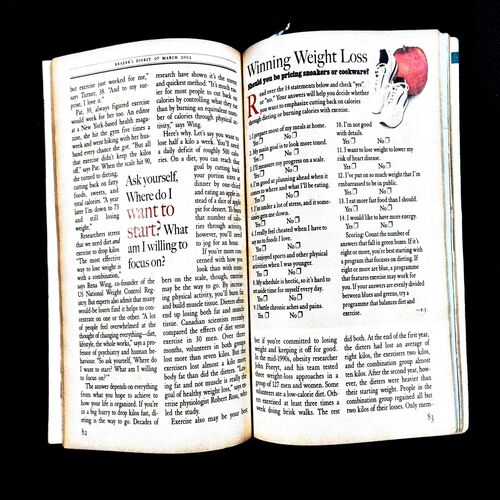 READER'S DIGEST MARCH 2002
but exercise just worked for me,"
says Turner, 38. "And to my sur-
prise, I love it."
Pat, 39, always figured exercise
would work for her too. An editor
at a New York-based health maga-
zine, she hit the gym five times a
week and went hiking with her hus-
band every chance she got. "But all
that exercise didn't keep the kilos
off," says Pat. When the scale hit 90,
she turned to dieting,
cutting back on fatty
foods, sweets, and
total calories. "A year
later I'm down to 73
and still losing
weight."
Researchers stress
that we need diet and
exercise to drop kilos.
"The most effective
way to lose weight is
with a combination,"
says Rena Wing, co-founder of the
US National Weight Control Reg-
istry. But experts also admit that many
would-be losers find it helps to con-
centrate on one or the other. "A lot
of people feel overwhelmed at the
thought of changing everything—diet,
lifestyle, the whole works," says a pro-
fessor of psychiatry and human be-
haviour. "So ask yourself, 'Where do
I want to start? What am I willing
to focus on?'"
The answer depends on everything
from what you hope to achieve to
how your life is organised. If you're
in a big hurry to drop kilos fast, di-
eting is the way to go. Decades of
82
Ask yourself,
Where do I
want to
start? What
am I willing to
focus on?
research have shown it's the surest
and quickest method. "It's much eas-
ier for most people to cut back on
calories by controlling what they eat
than by burning an equivalent num-
ber of calories through physical ac-
tivity," says Wing.
Here's why. Let's say you want to
lose half a kilo a week. You'll need
a daily deficit of roughly 500 calo-
ries. On a diet, you can reach that
goal by cutting back
your portion sizes at
dinner by one-third
and eating an apple in-
stead of a slice of apple
pie for dessert. To burn
that number of calo-
ries through activity,
however, you'll need
to jog for an hour.
If you're more con-
cerned with how you
look than with num-
bers on the scale, though, exercise
may be the way to go. By increas-
ing physical activity, you'll burn fat
and build muscle tissue. Dieters often
end up losing both fat and muscle
tissue. Canadian scientists recently
compared the effects of diet versus
exercise in 30 men. Over three
months, volunteers in both groups
lost more than seven kilos. But the
exercisers lost almost a kilo more
body fat than did the dieters. "Los-
ing fat and not muscle is really the
goal of healthy weight loss," says ex-
ercise physiologist Robert Ross, who
led the study.
Exercise also may be your best
Winning Weight Loss
Should you be pricing sneakers or cookware?
Read over the 14 statements below and check "yes"
or "no." Your answers will help you decide whether
you want to emphasize cutting back on calories
through dieting or burning calories with exercise.
1. I prepare most of my meals at home.
Yes No
2. My main goal is to look more toned.
Yes No
3. I'll measure my progress on a scale.
Yes No
4. I'm good at planning ahead when it
comes to where and what I'll be eating.
Yes No
5. I'm under a lot of stress, and it some-
times gets me down.
Yes No
6. I really feel cheated when I have to
say no to foods I love.
Yes No
7. I enjoyed sports and other physical
activities when I was younger.
Yes No
8. My schedule is hectic, so it's hard to
set aside time for myself every day.
Yes No
9. I battle chronic aches and pains.
Yes No
10. I'm not good
with details.
Yes No
11. I want to lose weight to lower my
risk of heart disease.
Yes No
12. I've put on so much weight that I'm
embarrassed to be in public.
Yes No
13. I eat more fast food than I should.
Yes No
14. I would like to have more energy.
Yes No
Scoring: Count the number of
answers that fall in green boxes. If it's
eight or more, you're best starting with
a program that focuses on dieting. If
eight or more are blue, a programme
that features exercise may work for
you. If your answers are evenly divided
between blues and greens, try a
programme that balances diet and
exercise.
bet if you're committed to losing
weight and keeping it off for good.
In the mid-1990s, obesity researcher
John Foreyt, and his team tested
three weight-loss approaches in a
group of 127 men and women. Some
volunteers ate a low-calorie diet. Oth-
ers exercised at least three times a
week doing brisk walks. The rest
did both. At the end of the first year,
the dieters had lost an average of
eight kilos, the exercisers two kilos,
and the combination group almost
ten kilos. After the second year, how-
ever, the dieters were heavier than
their starting weight. People in the
combination group regained all but
two kilos of their losses. Only mem-
83